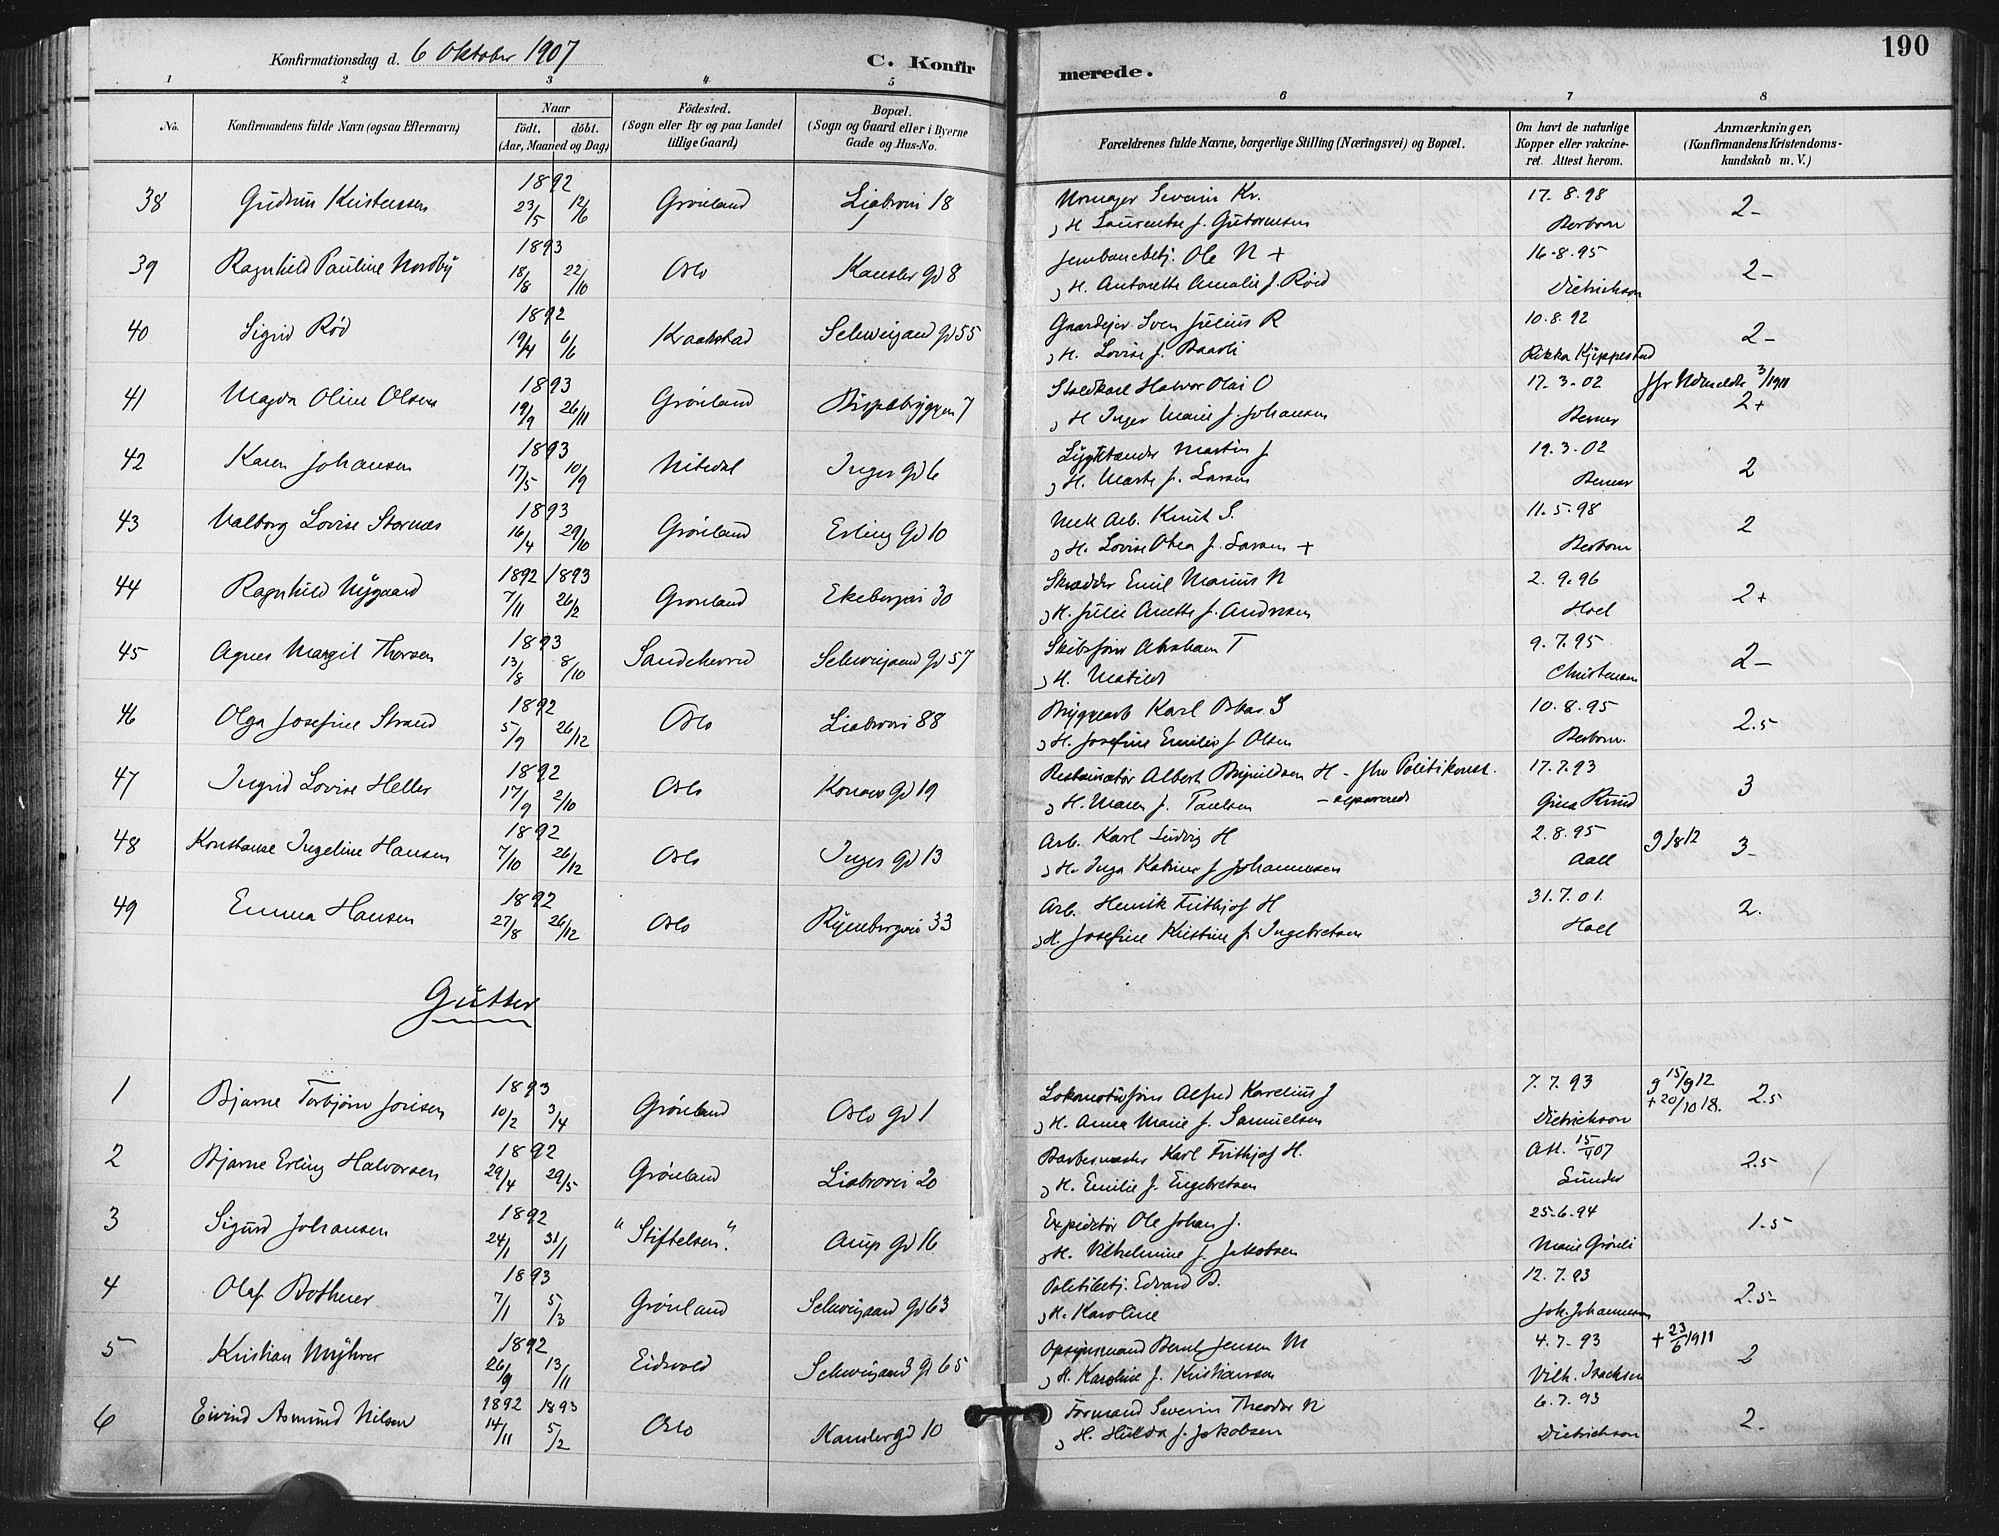 190
Konfirmationsdag d. 6 Oktober 1907
C. Konfirmerede.
1 2 3 4 5 6 7 8
No.
Konfirmandens fulde Navn (ogsaa Efternavn)
Naar
födt. döbt.
(Aar, Maaned og Dag)
Födested.
(Sogn eller By og paa Landet
tillige Gaard)
Bopæl.
(Sogn og Gaard eller i Byerne
Gade og Hus-No.
Forældrenes fulde Navne, borgerlige Stilling (Næringsvei) og Bopæl.
Om havt de naturlige
Kopper eller vakcine-
ret. Attest herom.
Anmærkninger,
(Konfirmandens Kristendoms-
kundskab m. V.)
38 Gudrun Kristensen 1892 23/5 12/6 Grönland Liabrovei 18 Severin Kr. 17.8.98 2-
H. Laurentse f. Gutormsen Berbom
39 Ragnhild Pauline Nordby 1893 18/8 22/10 Oslo Kansler gd 8 Jernbanebetj. Ole N + 16-8.95 2-
H. Antonette Amalie f. Röed Dietrichson
40 Sigrid Rød 1892 19/4 6/6 Kraakstad Schweigaard gd 55 Gaardejer Sven Julius R 10.8.92 2-
H. Lovise f. Rikka Kjeppestad
41 Magda Oline Olsen 1893 19/9 26/11 Grönland Bispebryggen 7 Staldkarl Halvor Olai O 17.3-02 Udmeldt 3/1911 2+
H Inger Marie f. Johansen Berner
42 Karen Johansen 1893 17/5 10/9 Nitedal Inges gd 6 Lygtetænder Martin J 19.3.02 2
H. Marte f. Larsen Berner
43 Valborg Lovise Stornæs 1893 16/4 29/10 Grönland Erling gd 10 Mek Arb. Knut S. 11.5-98 2
H. Lovise Othea f. Larsen + Berbom
44 Ragnhild Nygaard 1892 1893 7/11 26/2 Grönland Ekebergvei 30 Skrædder Emil Marius N 2.9.96 2+
H. Julie Anette f. Andresen Hoel
45 Agnes Margit Thorsen 1893 13/8 8/10 Sandeherred Schweigaard gd 57 Skibsförer Abraham T 9.7.95 2-
H. Matilde Christensen
46 Olga Josefine Strand 1892 5/9 26/12 Oslo Liabrovei 88 Bryggearb Karl Oskar S 10.8.95 2.5
H. Josefine Emilie f Olsen Berbom.
47 Ingrid Lovise Heller 1892 17/9 2/10 Oslo Konows gd 19 Restauratör Albert Brynildsen H - fhv Politikonst. 17.7.93 3
H. Maren f. Paulsen - separerede Gina Ruud
48 Konstanse Ingeline Hansen 1892 7/10 26/12 Oslo Inges gd 13 Arb. Karl Ludvig H 2.8.95 3-
H. Inga Katrine f Johannesen Aall
49 Emma Hansen 1892 27/8 26/12 Oslo Ryenbergvei 33 Arb. Henrik Frithjof H 31.7.01. 2.
H. Josefine Kristine f. Ingebretsen Hoel
Gutter
1 Bjarne Torbjörn Jonsen 1893 10/2 3/4 Grönland Oslo gd 1 Lokomotivförer Alfred Karelius J 7.7.93 g 15/9 12 2.5
H. Anna Marie f. Samuelsen Dietrichson + 20/10 18.
2 Bjarne Erling Halvorsen 1892 29/4 29/5 Grönland Liabrovei 20 Barbermester Karl Frithjof H. Att. 15/ 07 2.5
H. Emilie f. Engebretsen Sunder
3 Sigurd Johansen 1892 24/1 31/1 "Stiftelsen". Arups gd 16 Expeditör Ole Johan J. 25-6.94 1.5
H. Vilhelmine f. Jakobsen Marie Grönli
4 Olaf Bothner 1893 7/1 5/3 Grönland Schweigaard gd 63 Politibetj. Edvard B. 12.7.93 2.5-
H. Karoline Joh. Johannesen
5 Kristian Myhrer 1892 26/9 13/11 Eidsvold Schweigaard gd 65 Opsynsmand Bernt Jensen M 4.7-93 + 23/6 1911 2
H. Karoline f. Kristiansen Vilh. Isachsen
6 Eivind Asmund Nilsen 1892 1893 14/11 5/2 Oslo Kanslergd 10 Formand Severin Theodor N 6.7.93 2-
H. Hulda f. Jakobsen Dietrichson